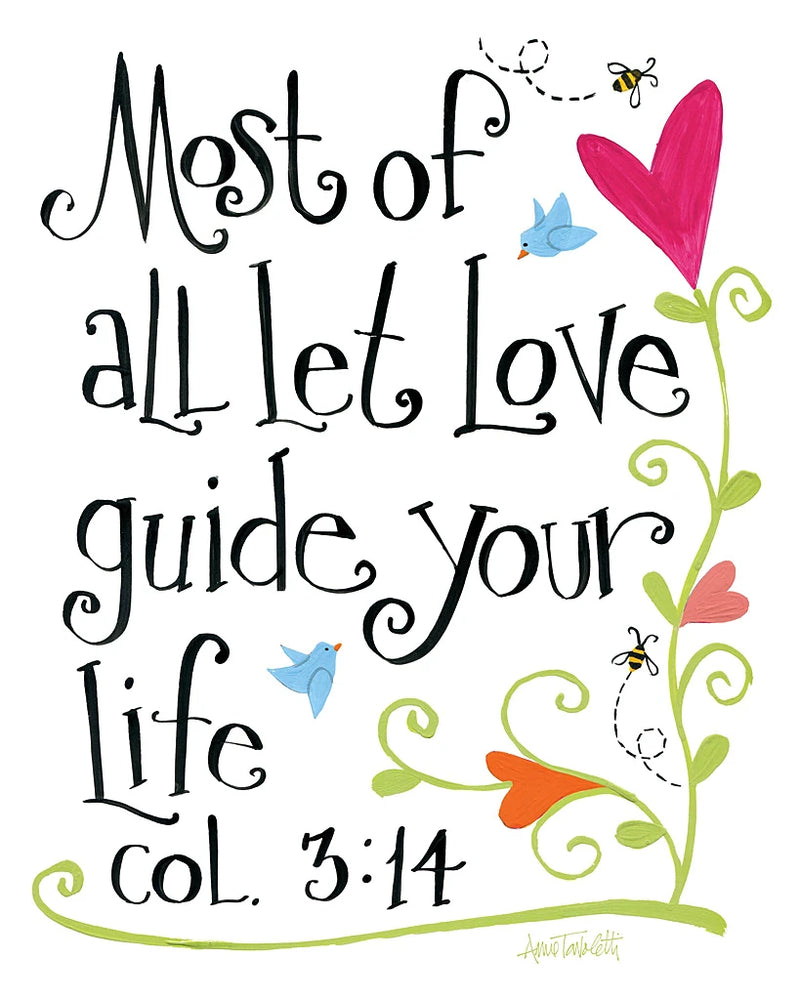 Most of
all let Love
guide your
Life
Col. 3:14